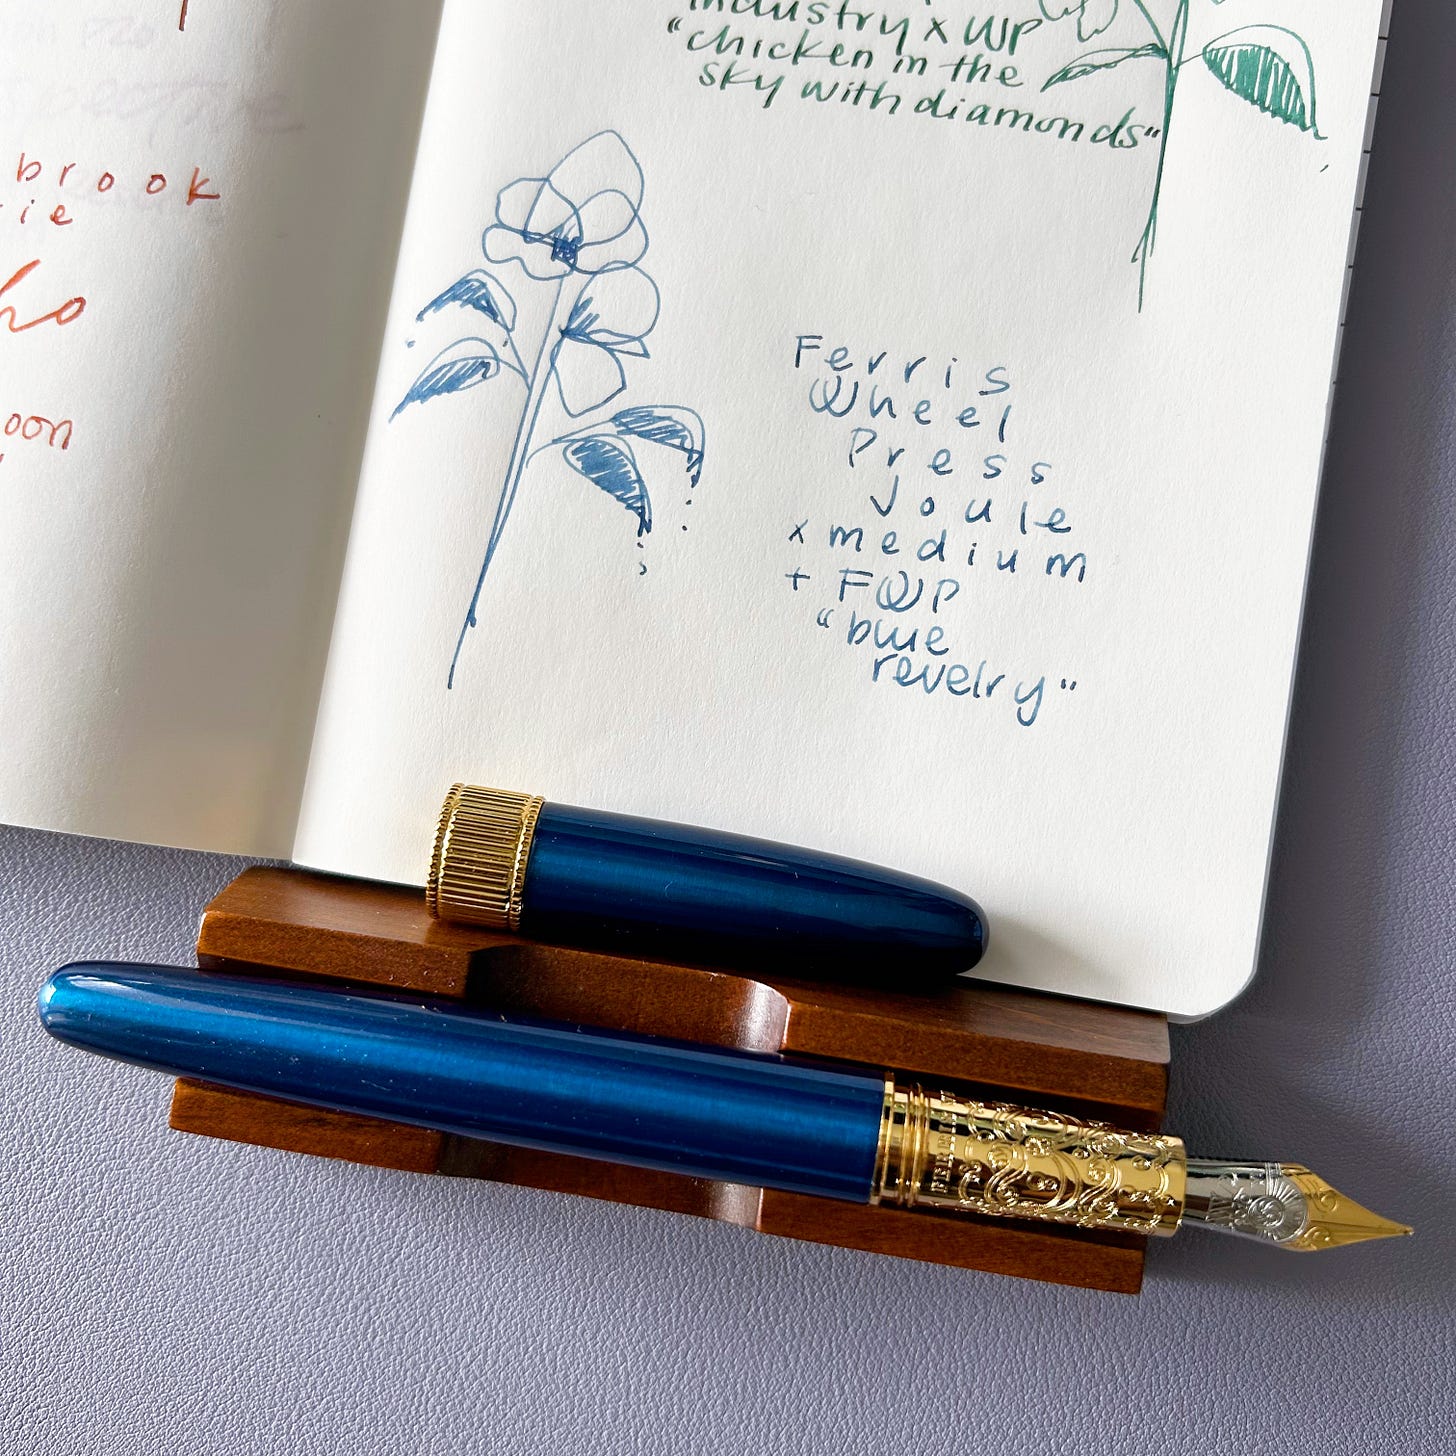 brook
ie
ho
oon
industry x WP
"chicken in the
sky with diamonds"
Ferris
Wheel
Press
Joule
x medium
+ FWP
"blue
revelry"